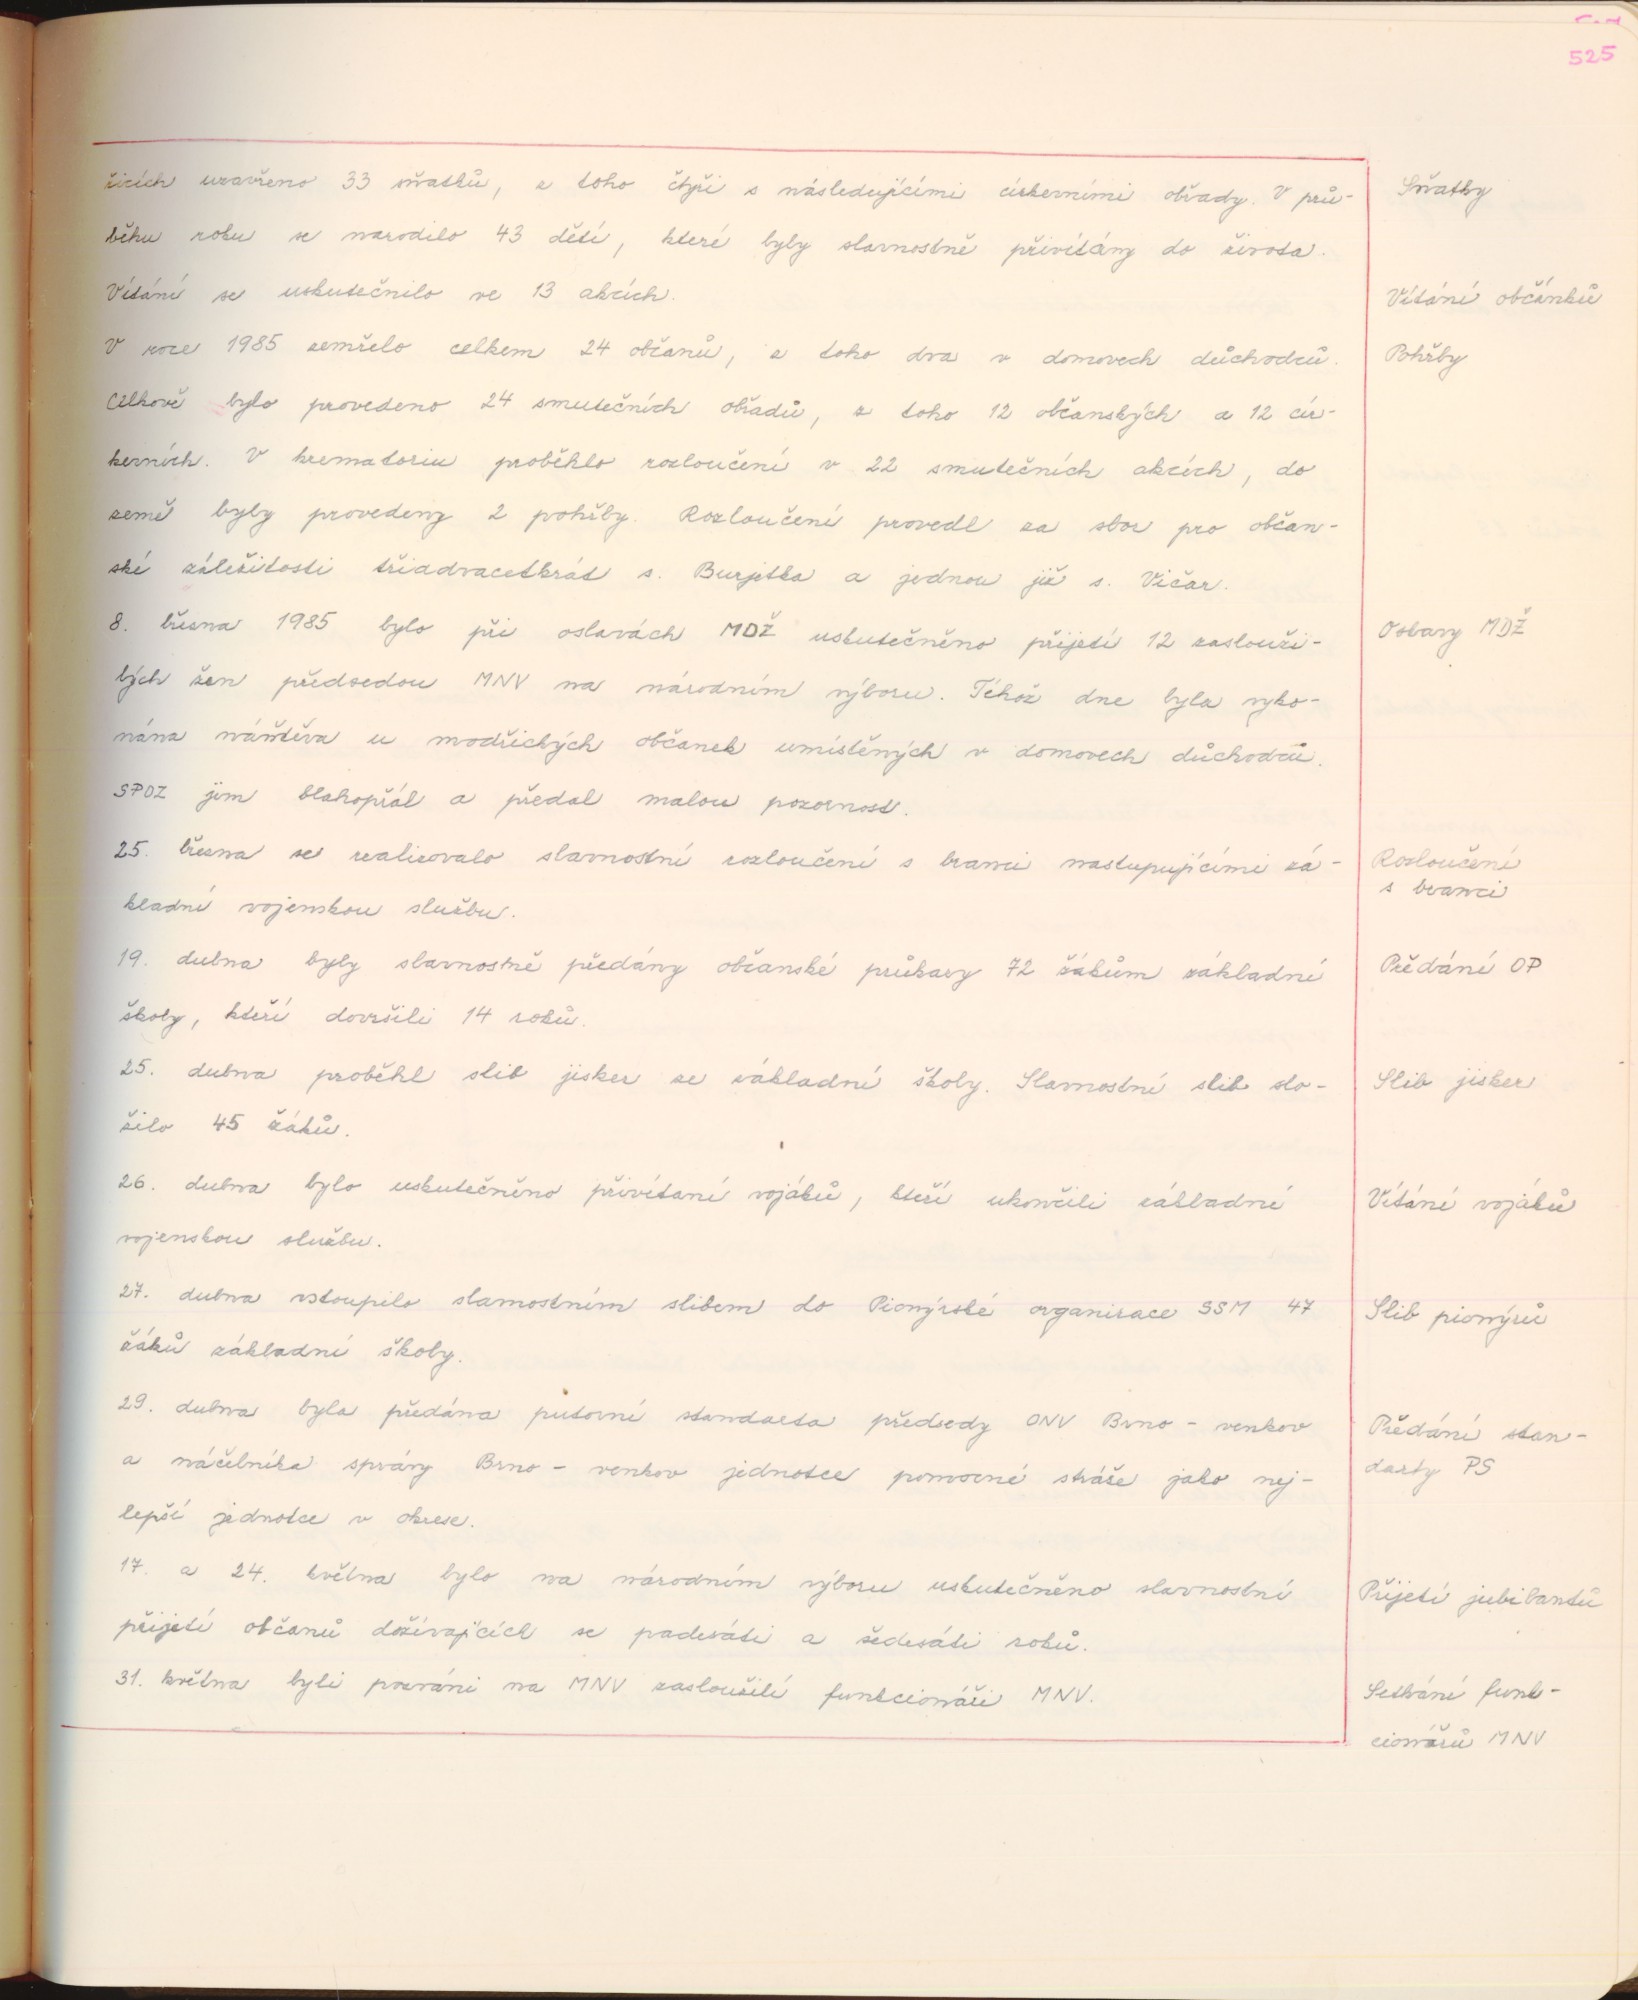 525
řicích uzavřeno 33 sňatků, z toho čtyři s následujícími církevními obřady. V prů-
Sňatky
běhu roku se narodilo 43 dětí, které byly slavnostně přivítány do života.
Vítání se uskutečnilo ve 13 akcích.
Vítání občánků
V roce 1985 zemřelo celkem 24 občanů, z toho dva v domovech důchodců.
Pohřby
Celkově bylo provedeno 24 smutečních obřadů, z toho 12 občanských a 12 cír-
kevních. V krematoriu proběhlo rozloučení v 22 smutečních akcích, do
země byly provedeny 2 pohřby. Rozloučení provedl za sbor pro občan-
ské záležitosti třiadvacetkrát s. Burjetka a jednou již s. Vičar.
8. března 1985 bylo při oslavách MDŽ uskutečněno přijetí 12 zaslouži-
Oslavy MDŽ
lých žen předsedou MNV na národním výboru. Téhož dne byla vyko-
nána návštěva u modřických občanek umístěných v domovech důchodců.
SPOZ jim blahopřál a předal malou pozornost.
25. března se realizovalo slavnostní rozloučení s branci nastupujícími zá-
Rozloučení
s branci
kladní vojenskou službu.
19. dubna byly slavnostně předány občanské průkazy 72 žákům základní
Předání OP
školy, kteří dovršili 14 roků.
25. dubna proběhl slib jisker ze základní školy. Slavnostní slib slo-
Slib jisker
žilo 45 žáků.
26. dubna bylo uskutečněno přivítaní vojáků, kteří ukončili základní
Vítání vojáků
vojenskou službu.
27. dubna vstoupilo slavnostním slibem do Pionýrské organizace SSM 47
Slib pionýrů
žáků základní školy.
29. dubna byla předána putovní standarta předsedy ONV Brno - venkov
Předání stan-
a náčelníka správy Brno - venkov jednotce pomocné stráže jako nej-
darty PS
lepší jednotce v okrese.
17. a 24. května bylo na národním výboru uskutečněno slavnostní
Přijetí jubilantů
přijetí občanů dožívajících se padesáti a šedesáti roků.
31. května byli pozváni na MNV zasloužilí funkcionáři MNV.
Setkání funk-
cionářů MNV